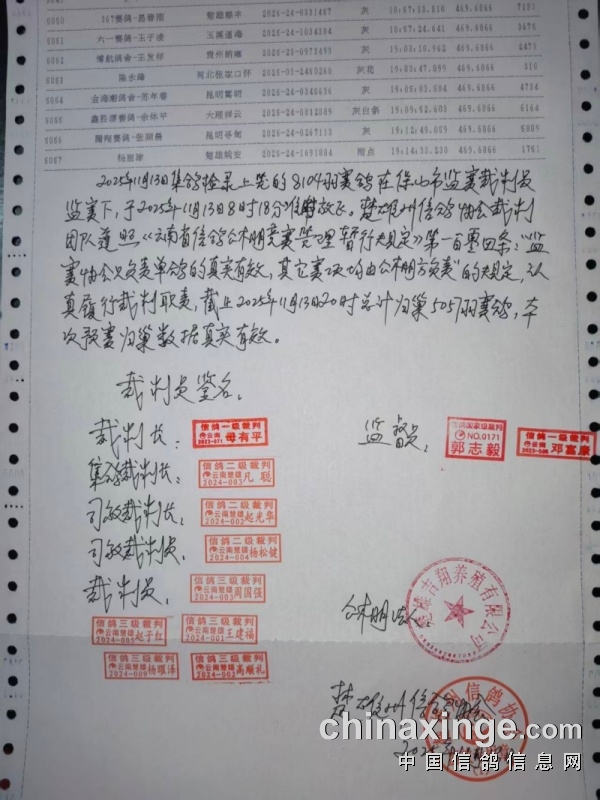 5060 367赛鸽-易春雨 楚雄禄丰 2025-24-0331467 灰 469.6866
5061 六一赛鸽-王子凌 玉溪通海 2025-24-1034394 灰 469.6866
5062 博航鸽舍-王发祥 灰 19:03:10.962 469.6866
5063 陈永峰 河北张家口怀 灰花 19:03:47.099 469.6866 510
5064 金海潮鸽舍-苏年春 昆明嵩明 2025-24-0340636 灰 469.6866 4784
5065 大理祥云 2025-24-0812089 灰白条 19:09:52.608 469.6866 6164
5066 昆明寻甸 2025-24-0267113 灰 19:12:49.089 469.6866
5067 楚雄姚安 2025-24-1691884 雨点 19:14:33.230 469.6866
2025年11月13日集鸽检录上笼的8104羽赛鸽在保山市监赛裁判员
监赛下，于2025年11月13日8时18分准时放飞。楚雄州信鸽协会裁判
团队遵照《云南省信鸽公棚竞赛管理暂行规定》第一百零四条：“监
赛协会只负责单鸽的真实有效，其它赛项均由公棚方负责”的规定，认
真履行裁判职责，截止2025年11月13日20时总计归巢5057羽赛鸽，本
次预赛归巢数据真实有效。
裁判员签名：
裁判长： 信鸽一级裁判 云南 2022-071 母有平 监督： 信鸽国家级裁判 NO.0171 郭志毅 信鸽一级裁判 云南 邓富康
集鸽裁判长： 信鸽二级裁判 云南楚雄 2024-003 凡聪
司放裁判长： 信鸽二级裁判 云南楚雄 2024-002 赵光华
司放裁判员： 信鸽二级裁判 云南楚雄 2024-004 杨松健
裁判员： 信鸽三级裁判 云南楚雄 2024-003 周国强
信鸽三级裁判 云南楚雄 2024-005 赵子红 信鸽三级裁判 云南楚雄 2024-001 王建福
信鸽三级裁判 云南楚雄 2024-009 杨曜泽 信鸽三级裁判 云南楚雄 2024-002 高顺礼
公棚法人： 楚雄吉翔养殖有限公司
楚雄州信鸽协会
chinaxinge.com
中国信鸽信息网